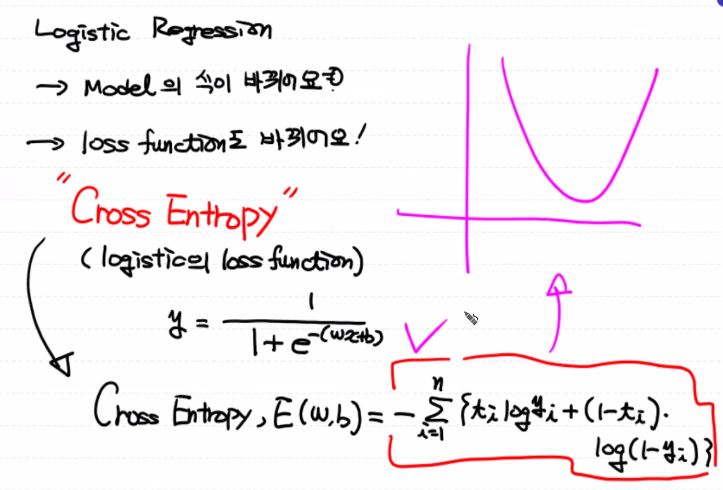 Logistic Regression
→ Model의 식이 바뀌어요?
→ loss function도 바뀌어요!
"Cross Entropy"
(logistic의 loss function)
y = 1 / (1 + e^-(wx+b))
Cross Entropy, E(w,b) = - Σ_{i=1}^{n} {t_i log y_i + (1-t_i)·
log(1-y_i)}